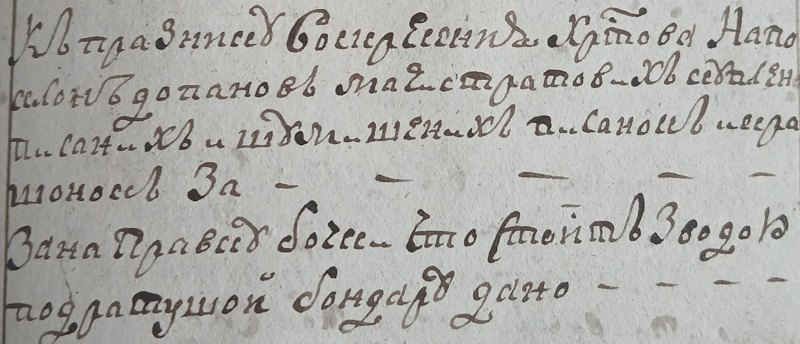 Къ празнику Воскресения Хрстова На по
селокъ до пановъ магистратовихъ куплен
писанихъ и шумишенихъ писанокъ и кра
шонокъ За — — — — —
За направку бочки что стоитъ Зводою
под ратушой бондару дано — — — —